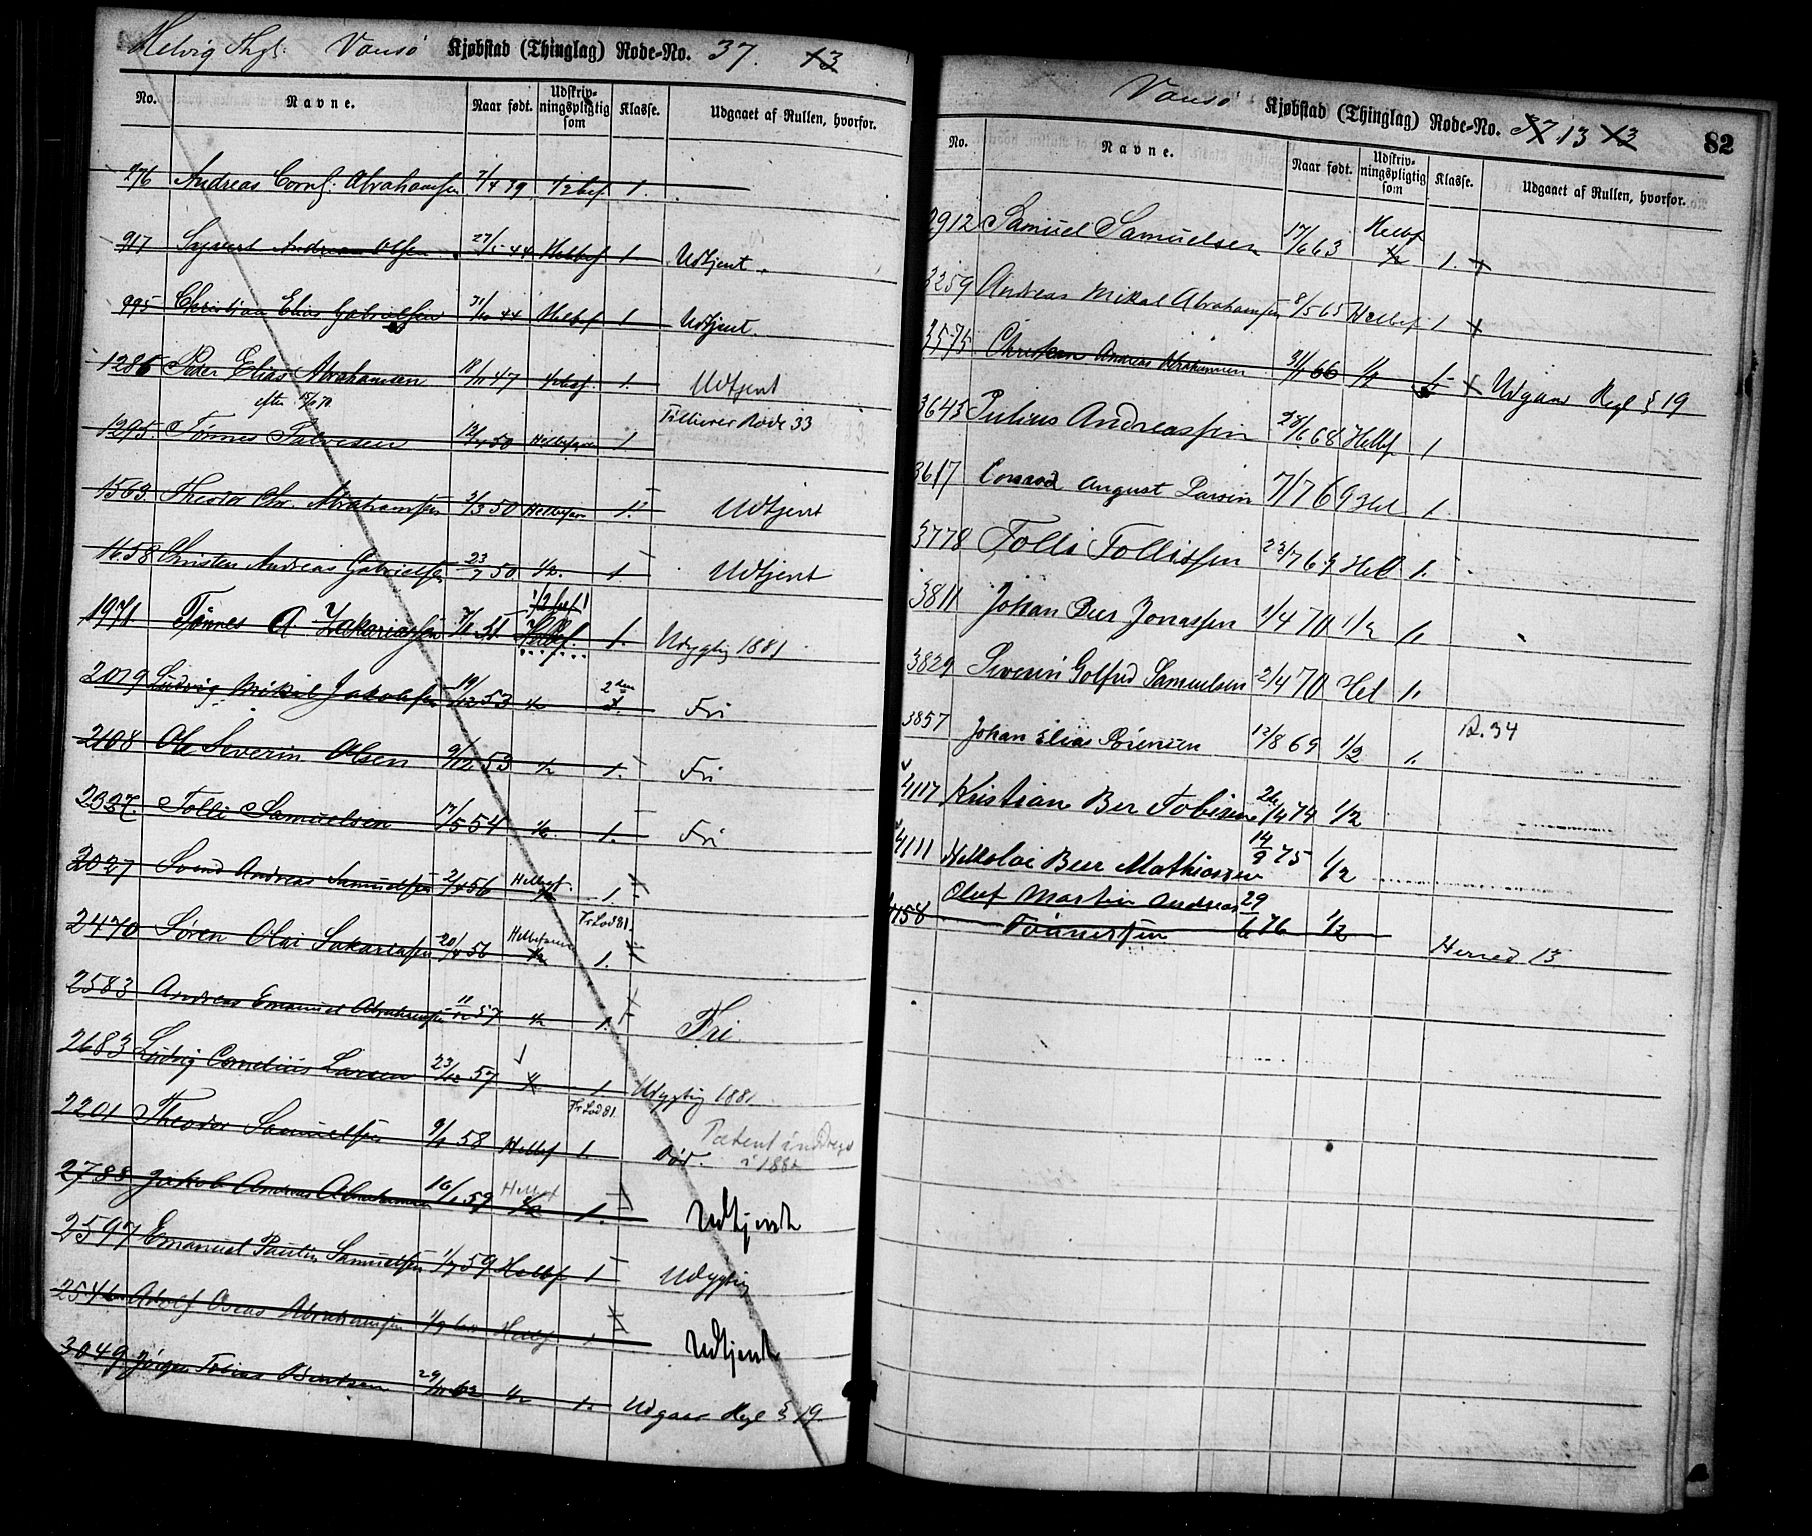 Helvig Thgl. Vansø Kjøbstad (Thinglag) Rode=No. 37. 13
No. Navne. Naar født. Udskriv-ningspligtig som Klasse. Udgaaet af Rullen, hvorfor.
276 Andreas Cornl. Abrahamsen 39 1/2bef 1.
917 Sigvart Andreas Olsen 44 Helbef 1 Udtjent.
995 Christian Elias Gabrielsen 31/10 44 Helbef 1 Udtjent.
1286 Peder Elias Abrahamsen 18/11 47 1/2bef. 1. Udtjent
1295. Tønnes Salvesen 50 Helbefaren 1 Tilhører Rode 33
1563. Theodor Chr. Abrahamsen 3/3 50 Helbefaren 1. Udtjent
1658 Christen Andreas Gabrielsen 23/7 50 1/2. 1. Udtjent
1971 Tønnes A. Zakariassen 1/2 bef Helbef. 1. Udygtig 1881
2079 Ludvig Mikal Jakobsen 19/12 53 1/2 2den Fri
2108 Ole Severin Olsen 9/12 53 1/2 1. Fri
2327. Tolli Samuelsen 17/5 54 1/2. 1. Fri
2027 Svend Andreas Samuelsen 2/4 56 1
Fr Lod 81.
2470 Søren Olai Sakariassen 20/4 56 Helbefaren 1/2 1.
2583 Andreas Emanuel Abrahamsen 57 1/2 1. Fri
2683 Ludvig Cornelius Larsen 23/12 57 1/2 1 Udygtig 1881
Fr Lod 81.
2201 Theodor Samuelsen 58 Helbef 1. Død. Patent inddrages i 1882
2788 Jakob Andreas Abrahamsen 16/1 59 Helbef 1/2 1. Udtjent
2597 Emanuel Paulin Samuelsen 1/7 59 Helbef 1 Udygtig
2546 Adolf Oscar Abrahamsen 1/9 60 Helbef 1 Udtjent
3049 Jørgen Tobias Berntsen 29/11 62 1/2 1. Udgaar Regl § 19.
Vansø Kjøbstad (Thinglag) Rode=No. 37 13 13 82
No. Navne. Naar født. Udskriv-ningspligtig som Klasse. Udgaaet af Rullen, hvorfor.
2912 Samuel Samuelsen 17/6 63 Helbf 1/2 1.
3259 Andreas Mikal Abrahamsen 8/5 65 Helbef 1
3575 Christen Andreas Abrahamsen 66 1/2 1. Udgaar Regl § 19
3643 Julius Andreassen 28/6 68 Helbf 1
3617 Conrad August Larsen 7/7 69 Hel 1.
3778 Tolli Tollissen 23/7 69 Hel 1.
3811 Johan Beer Jonassen 1/4 70 1/2 1.
3829 Severin Gotfred Samuelsen 2/4 70 Hel 1.
3857 Johan Elias Sørensen 12/8 69 1/2 1. R. 34
4117 Kristian Ber Tobisen 26/4 74 1/2
4111 Nikolai Beer Mathiassen 14/9 75 1/2
4158 Oluf Martin Andreas Tønnessen 29/6 76 1/2 Herred 13